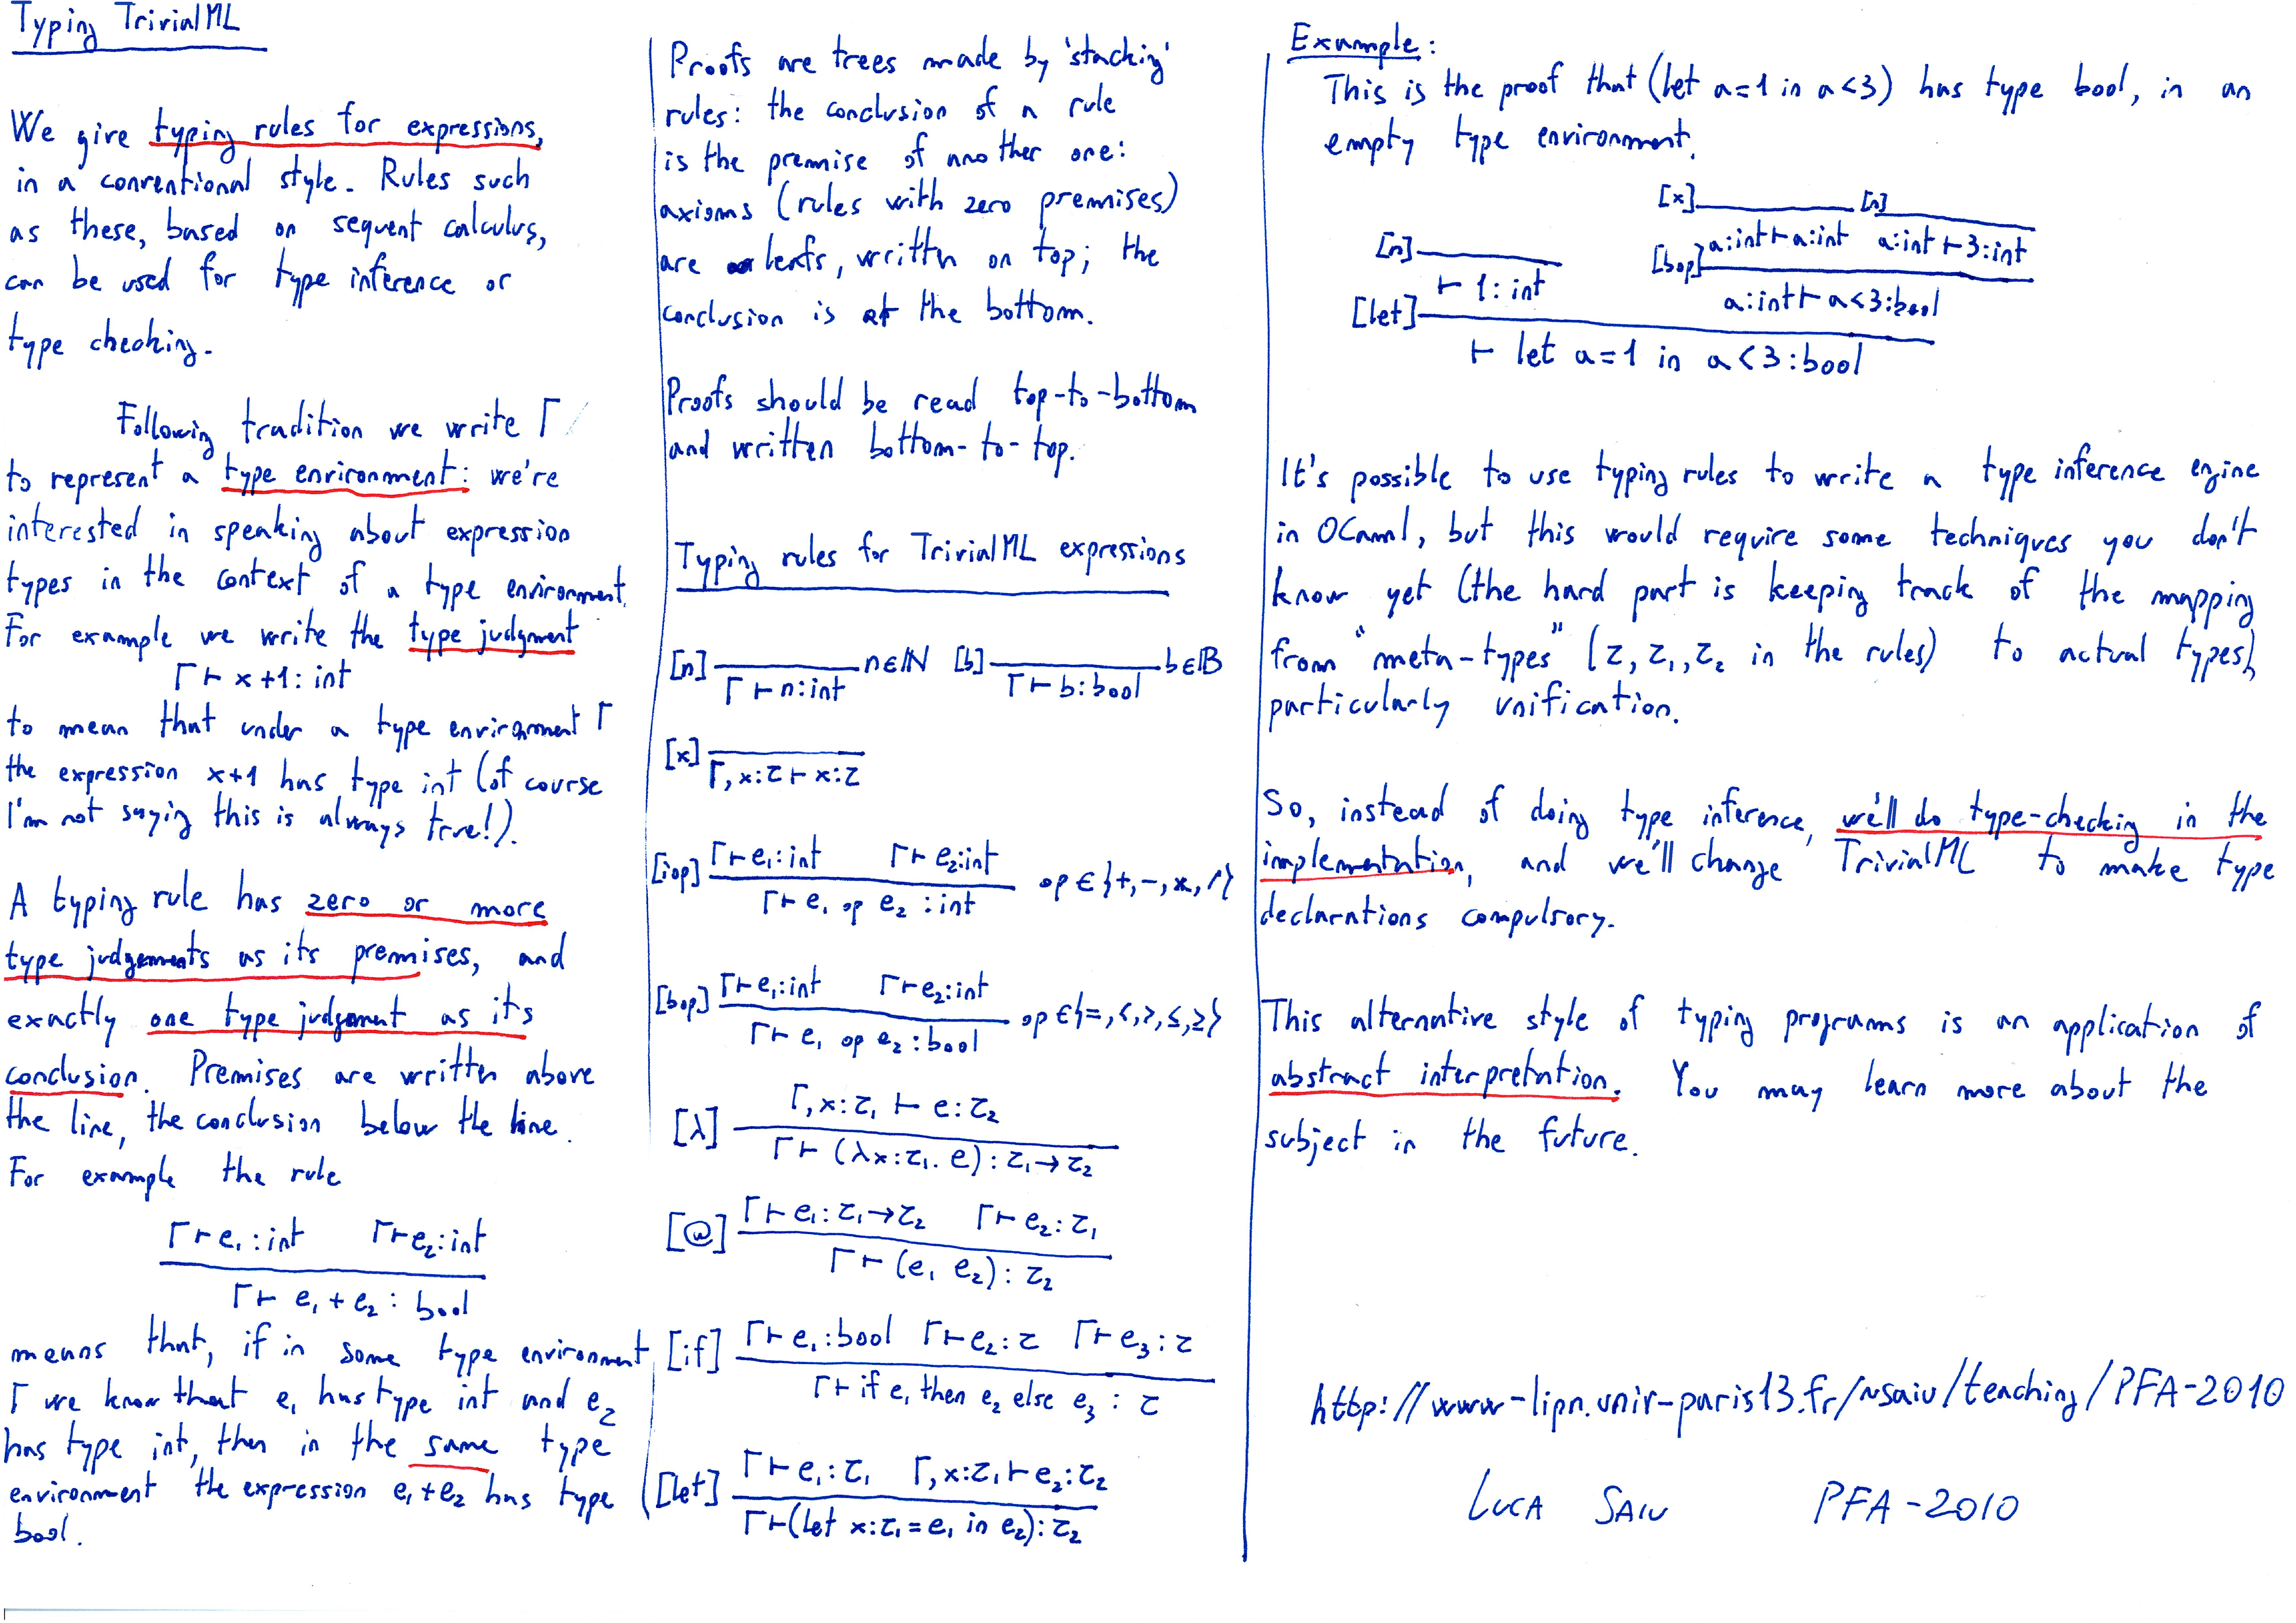 Typing TrivialML
We give typing rules for expressions,
in a conventional style. Rules such
as these, based on sequent calculus,
can be used for type inference or
type checking.
Following tradition we write Γ
to represent a type environment: we're
interested in speaking about expression
types in the context of a type environment.
For example we write the type judgment
Γ ⊢ x+1: int
to mean that under a type environment Γ
the expression x+1 has type int (of course
I'm not saying this is always true!).
A typing rule has zero or more
type judgements as its premises, and
exactly one type judgment as its
conclusion. Premises are written above
the line, the conclusion below the line.
For example the rule
Γ ⊢ e₁ : int Γ ⊢ e₂ : int
Γ ⊢ e₁ + e₂ : bool
means that, if in some type environment
Γ we know that e₁ has type int and e₂
has type int, then in the same type
environment the expression e₁+e₂ has type
bool.
Proofs are trees made by 'stacking'
rules: the conclusion of a rule
is the premise of another one:
axioms (rules with zero premises)
are leafs, written on top; the
conclusion is at the bottom.
Proofs should be read top-to-bottom
and written bottom-to-top.
Typing rules for TrivialML expressions
[n] n∈ℕ [b] b∈𝔹
Γ ⊢ n: int Γ ⊢ b: bool
[x]
Γ, x:τ ⊢ x:τ
Γ ⊢ e₁: int Γ ⊢ e₂: int
[iop] op ∈ {+, -, *, /}
Γ ⊢ e₁ op e₂ : int
Γ ⊢ e₁: int Γ ⊢ e₂: int
[bop] op ∈ {=, <, >, ≤, ≥}
Γ ⊢ e₁ op e₂ : bool
Γ, x:τ₁ ⊢ e:τ₂
[λ]
Γ ⊢ (λx:τ₁. e): τ₁→τ₂
Γ ⊢ e₁: τ₁→τ₂ Γ ⊢ e₂: τ₁
[@]
Γ ⊢ (e₁ e₂): τ₂
Γ ⊢ e₁: bool Γ ⊢ e₂: τ Γ ⊢ e₃: τ
[if]
Γ ⊢ if e₁ then e₂ else e₃ : τ
Γ ⊢ e₁: τ₁ Γ, x:τ₁ ⊢ e₂: τ₂
[let]
Γ ⊢ (let x:τ₁ = e₁ in e₂): τ₂
Example:
This is the proof that (let a=1 in a<3) has type bool, in an
empty type environment.
[x] [n]
[n] a:int ⊢ a:int a:int ⊢ 3:int
⊢ 1: int [bop]
[let] a:int ⊢ a<3:bool
⊢ let a=1 in a<3:bool
It's possible to use typing rules to write a type inference engine
in OCaml, but this would require some techniques you don't
know yet (the hard part is keeping track of the mapping
from "meta-types" (τ, τ₁, τ₂ in the rules) to actual types),
particularly unification.
So, instead of doing type inference, we'll do type-checking in the
implementation, and we'll change TrivialML to make type
declarations compulsory.
This alternative style of typing programs is an application of
abstract interpretation. You may learn more about the
subject in the future.
http://www-lipn.univ-paris13.fr/~saiu/teaching/PFA-2010
LUCA SAIU PFA-2010